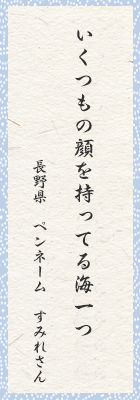 いくつもの顔を持ってる海一つ
長野県 ペンネーム すみれさん